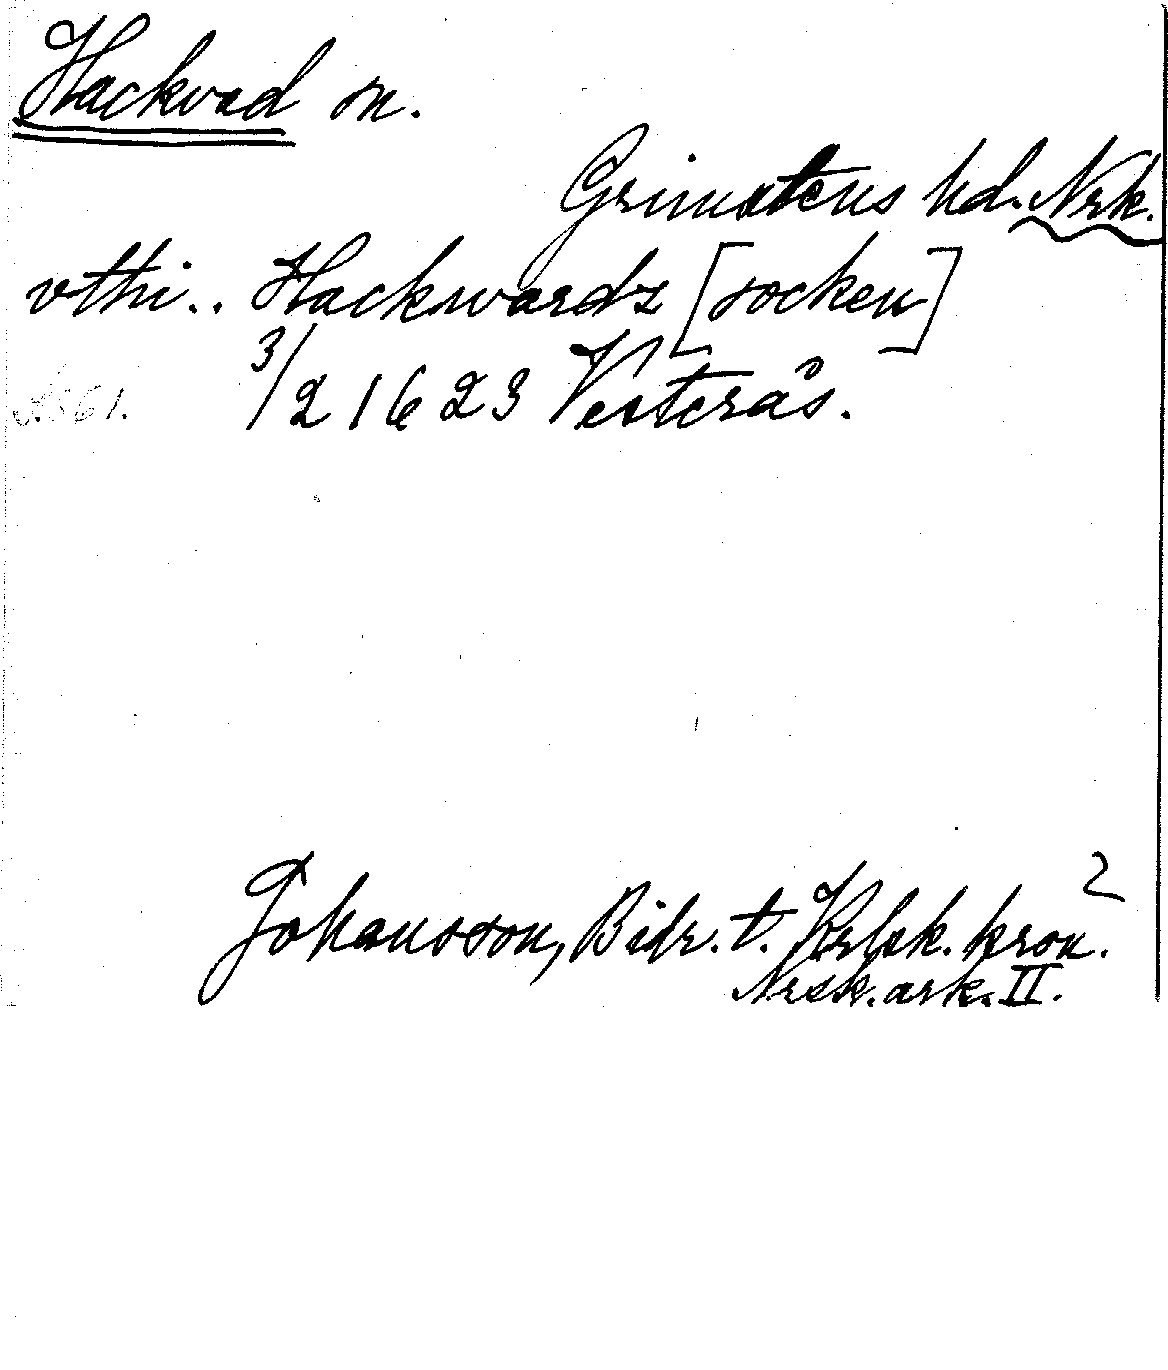 Hackvad sn.
Grimstens hd. Nrk.
vthi.. Hackwardz [socken]
3/2 1623 Vesterås.
S. 361.
Johansson, Bidr. t. Krlsk. kron. 2
Nrsk. ark. II.